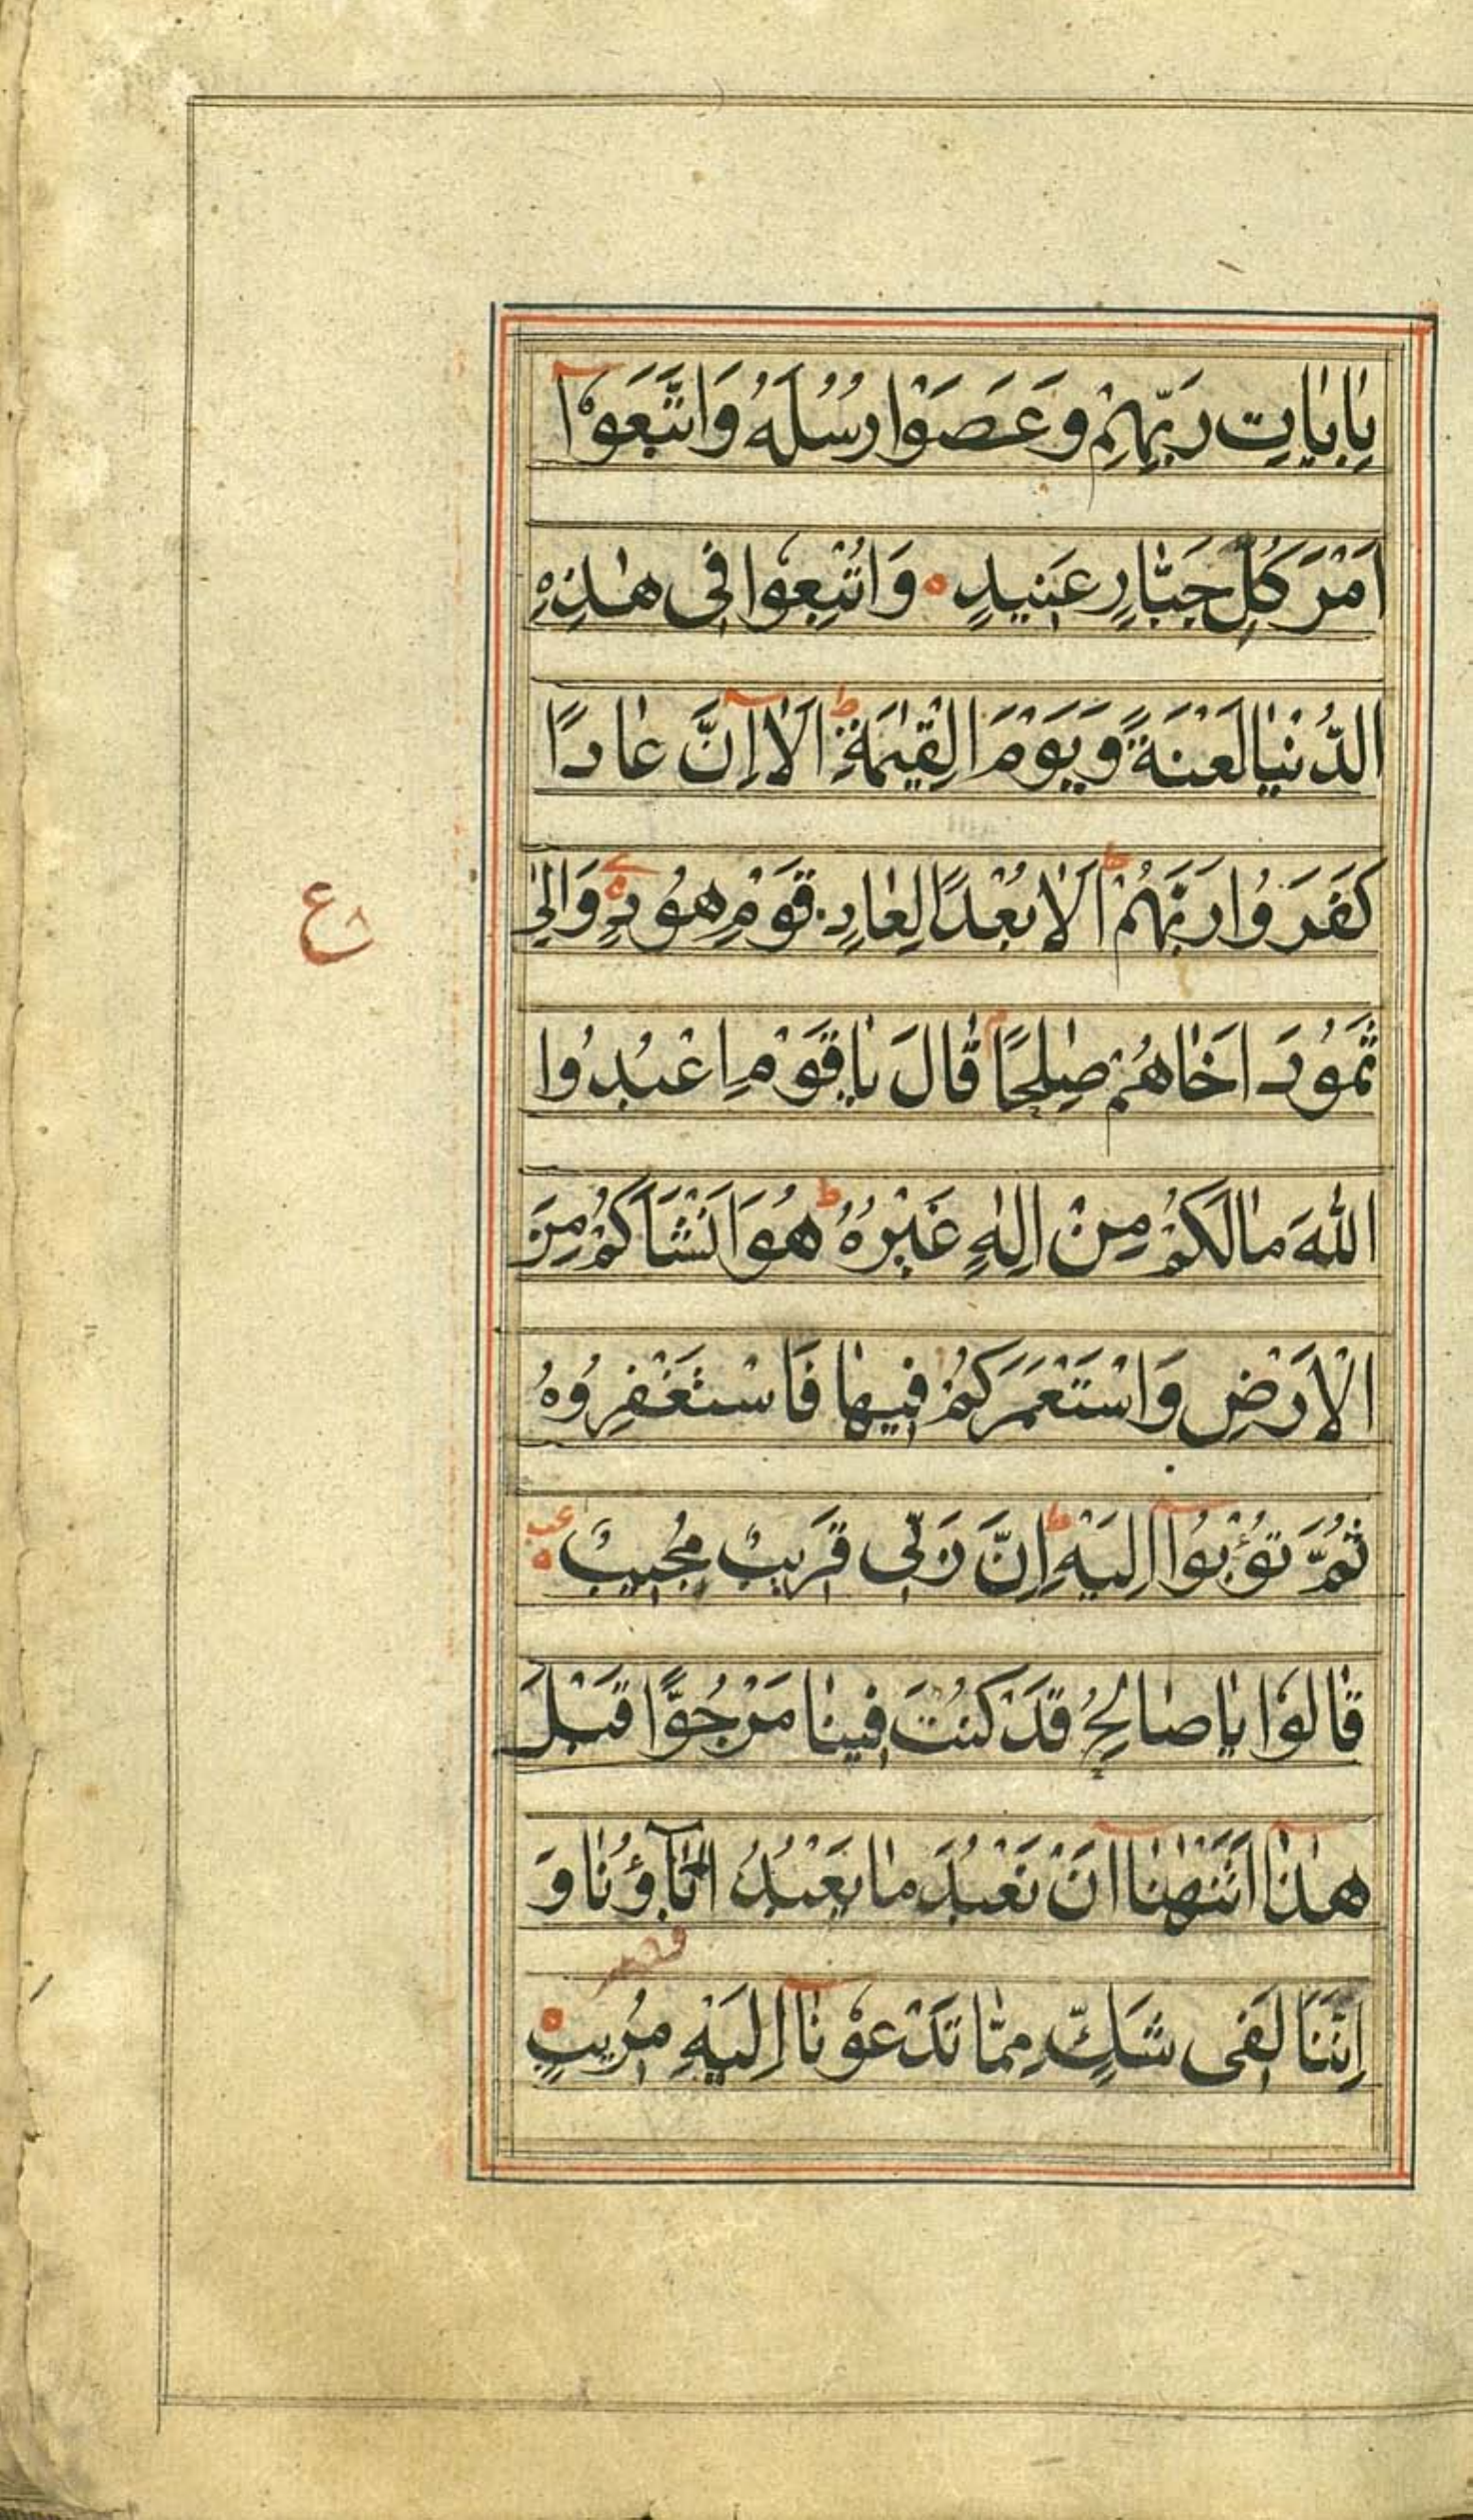 بِاٰيٰاتِ رَبِّهِمْ وَعَصَوْا رُسُلَهُ وَاتَّبَعَوْآ
اَمْرَ كُلِّ جَبّٰارٍ عَنِيدٍ ه وَاُتْبِعُوا فِى هٰذِهِ
الدُّنْيٰا لَعْنَةً وَيَوْمَ الْقِيٰمَةِ ط اَلٰا اِنَّ عٰادًا
كَفَرُوا رَبَّهُمْ ط اَلٰا بُعْدًا لِعٰادٍ قَوْمِ هُودٍ ه وَاِلٰى
ع
ثَمُودَ اَخٰاهُمْ صٰلِحًا م قٰالَ يٰاقَوْمِ اعْبُدُوا
اللّٰهَ مٰالَكُمْ مِنْ اِلٰهٍ غَيْرُهُ ط هُوَ اَنْشَاَكُمْ مِنَ
الْاَرْضِ وَاسْتَعْمَرَكُمْ فِيهٰا فَاسْتَغْفِرُوهُ
ثُمَّ تُوْبُوآ اِلَيْهِ ط اِنَّ رَبِّى قَرِيبٌ مُجِيبٌ ه عب
قٰالُوا يٰاصٰالِحُ قَدْ كُنْتَ فِينٰا مَرْجُوًّا قَبْلَ
هٰذٰآ اَتَنْهٰنٰآ اَنْ نَعْبُدَ مٰا يَعْبُدُ اٰبٰآؤُنٰا وَ
اِنَّنَا لَفِى شَكٍّ مِمّٰا تَدْعُوْنٰآ اِلَيْهِ مُرِيبٍ ه